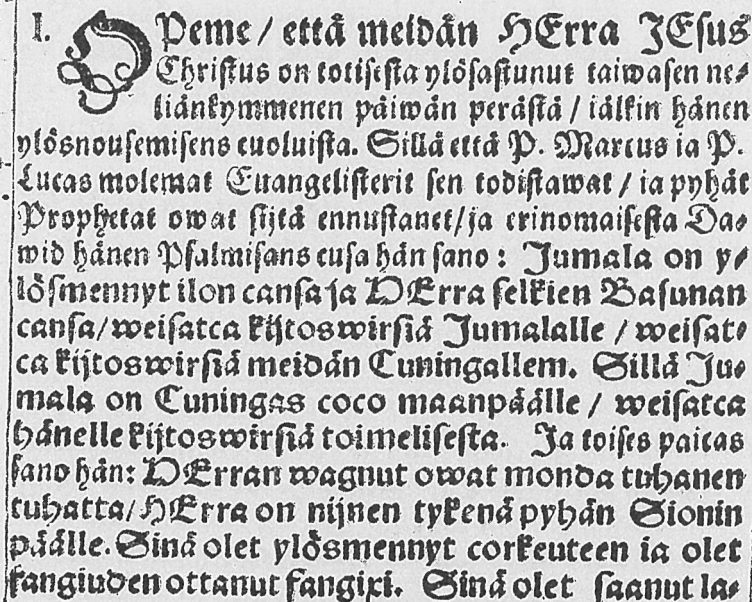 I. OPeme / että meidän HErra JEsus
Christus on totisesta ylösastunut taiwasen ne⸗
liänkymmenen päiwän perästä / iälkin hänen
ylösnousemisens euoluista. Sillä että P. Marcus ia P.
Lucas molemat Euangelisterit sen todistawat / ia pyhät
Prophetat owat sijtä ennustanet / ja erinomaisesta Da⸗
wid hänen Psalmisans cusa hän sano: Jumala on y⸗
lösmennyt ilon cansa ja HErra selkien Basunan
cansa / weisatca kijtoswirsiä Jumalalle / weisat⸗
ca kijtoswirsiä meidän Cuningallem. Sillä Ju⸗
mala on Cuningas coco maanpäälle / weisatca
hänelle kijtoswirsiä toimelisesta. Ja toises paicas
sano hän: HErran wagnut owat monda tuhanen
tuhatta / HErra on nijnen tykenä pyhän Sionin
päälle. Sinä olet ylösmennyt corkeuteen ia olet
fangiuden ottanut fangixi. Sinä olet saanut la⸗